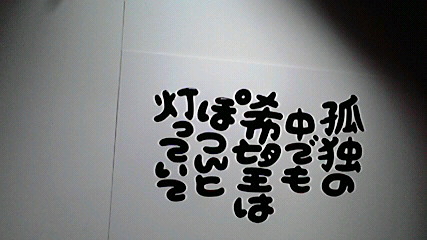 孤独の
中でも
希望は
ぽつんと
灯っていて